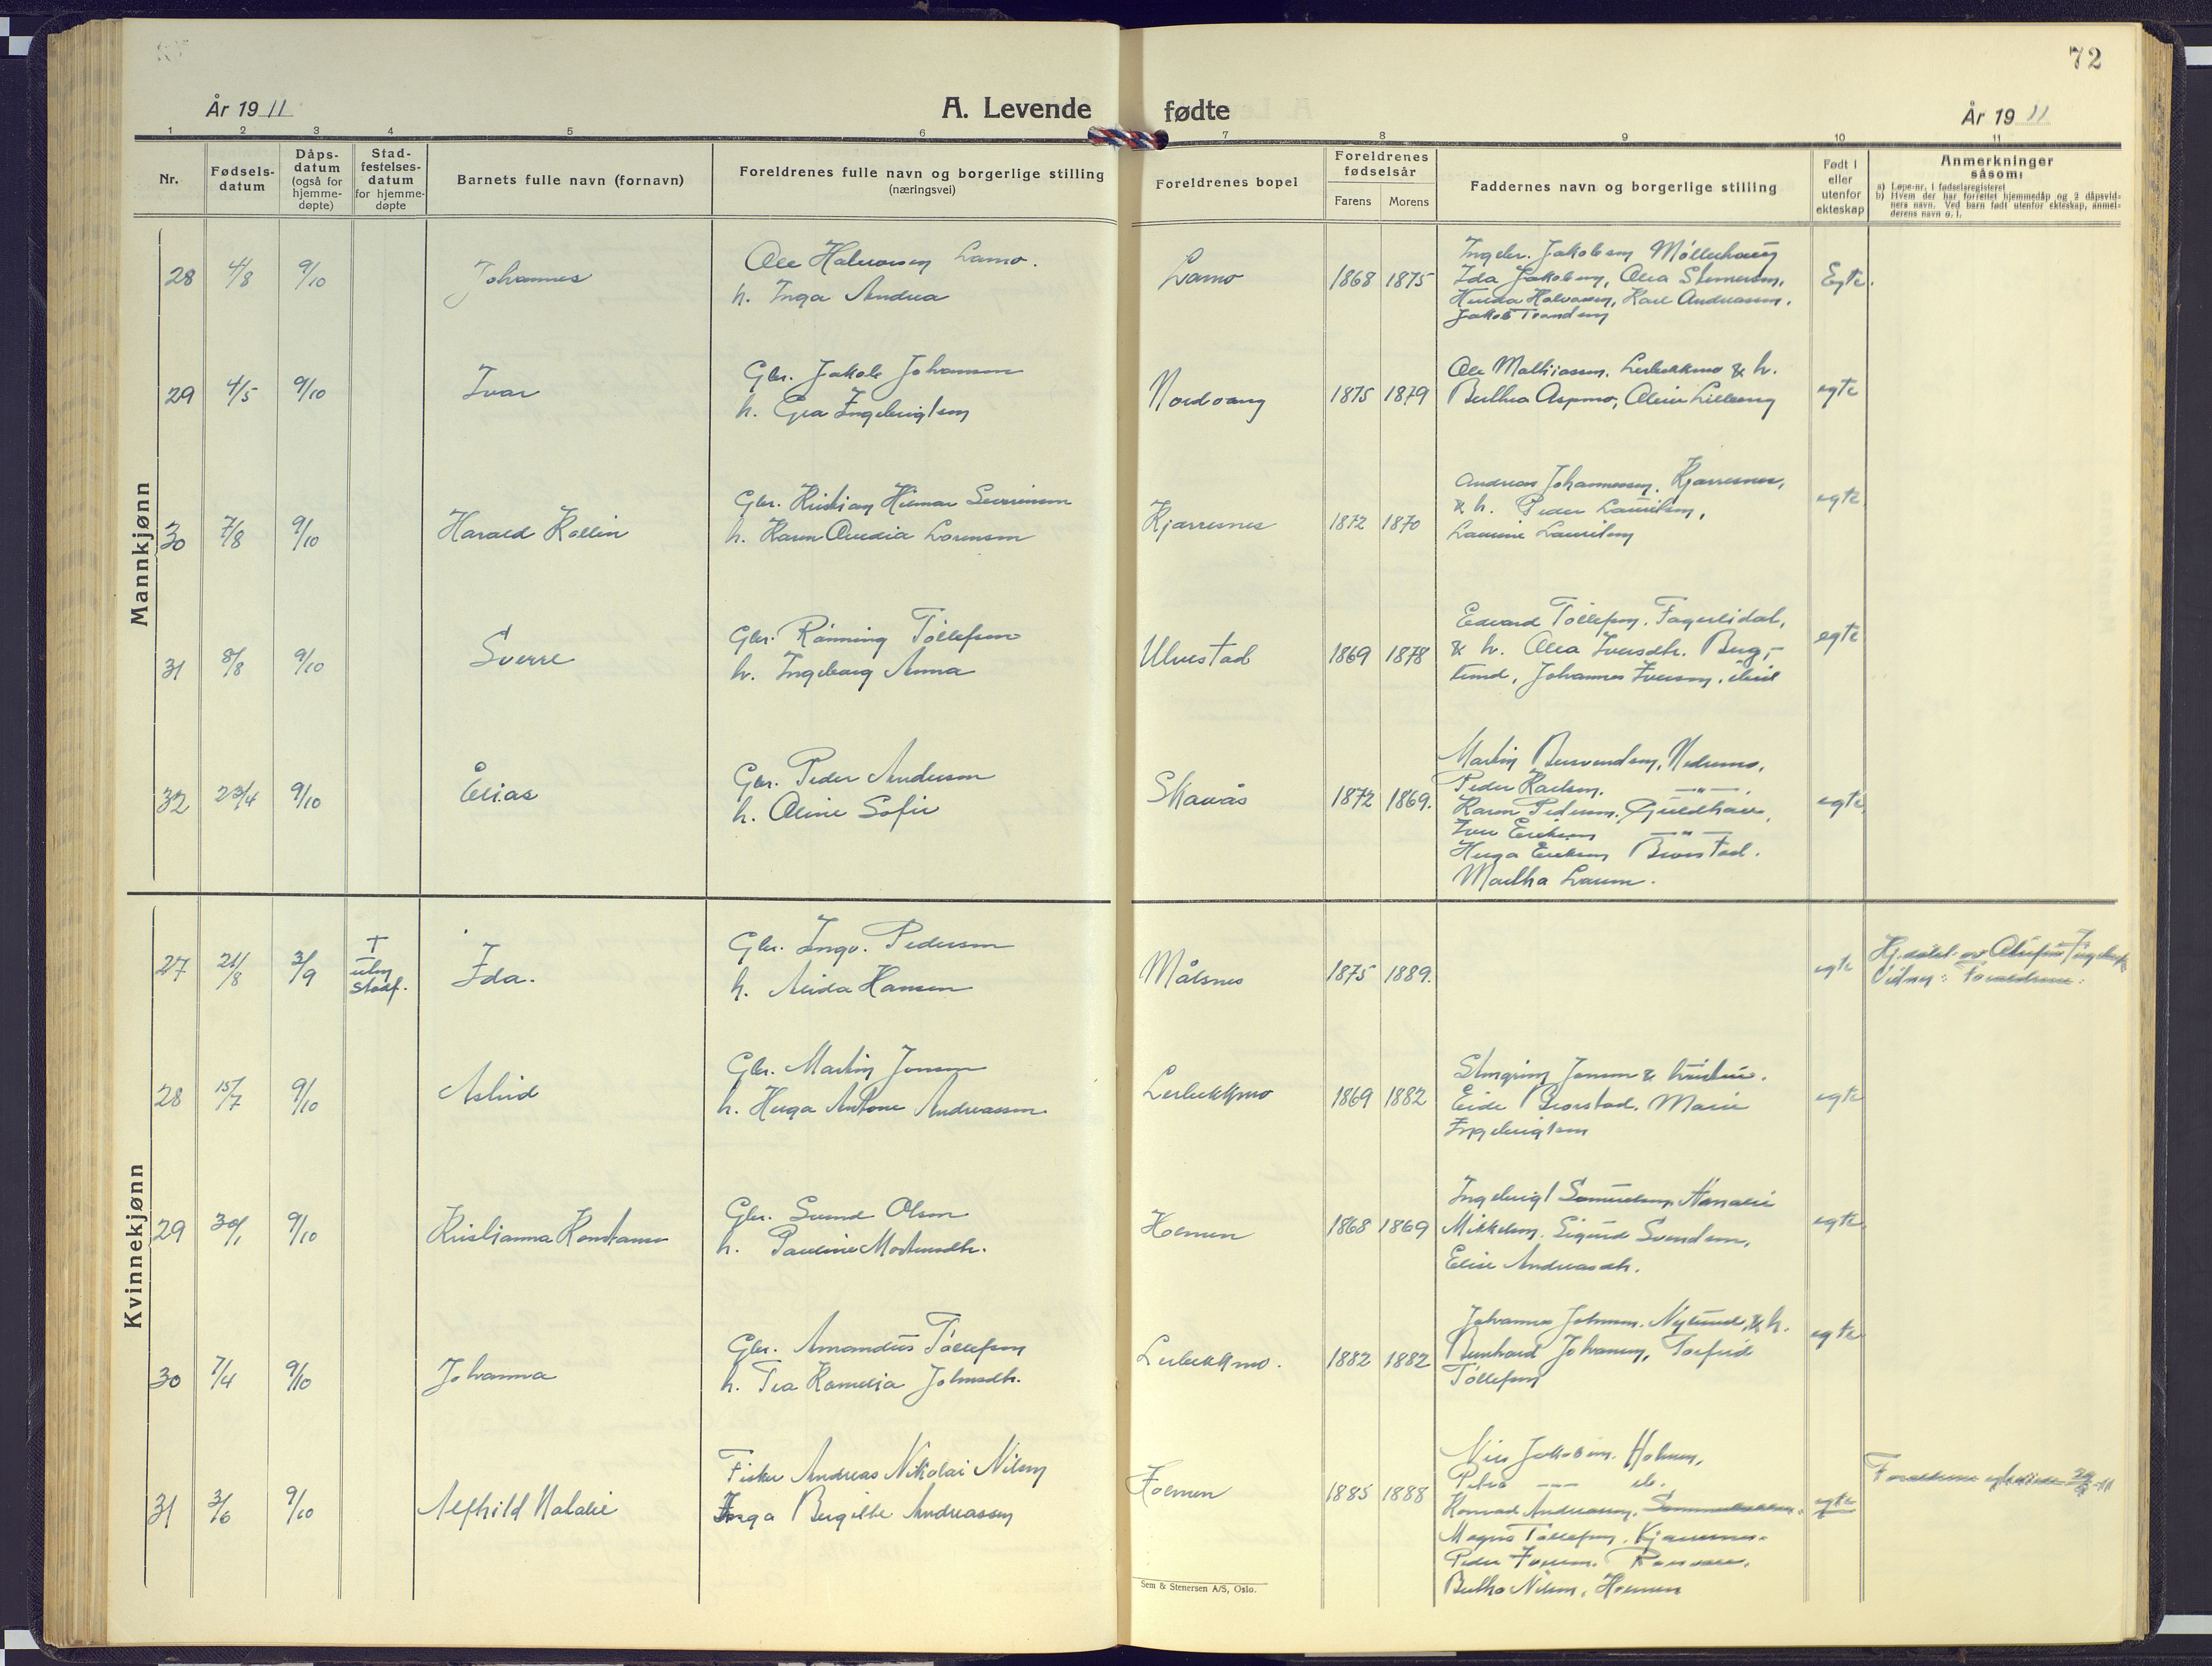 72
År 19 11
A. Levende fødte
År 19 11
1 2 3 4 5 6 7 8 9 10 11
Nr.
Fødsels-
datum
Dåps-
datum
(også for
hjemme-
døpte)
Stad-
festelses-
datum
for hjemme-
døpte
Barnets fulle navn (fornavn)
Foreldrenes fulle navn og borgerlige stilling
(næringsvei)
Foreldrenes bopel
Foreldrenes
fødselsår
Farens Morens
Faddernes navn og borgerlige stilling
Født i
eller
utenfor
ekteskap
Anmerkninger
såsom:
a) Løpe-nr. i fødselsregisteret
b) Hvem der har forrettet hjemmedåp og 2 dåpsvid-
ners navn. Ved barn født utenfor ekteskap, anmel-
derens navn o. l.
Mannkjønn
28 4/8 9/10 Johannes
Ole Halvorsen Lamo.
h. Inga Andrea
Lamo 1868 1875
Ingebr. Jakobsen Møllerhaug
Ida Jakobsen, Olea Steinersen,
Halvorsen, Karl Andreassen,
Jakob Trondsen
Egte.
29 4/5 9/10 Ivar
Gbr. Jakob Johansen
h. Gea Ingebrigtsen
Nordvang 1875 1879
Ole Mathiassen, Leirbekkmo & h.
Berthea Aspmo,
egte
30 7/8 9/10 Harald Kollin
Gbr. Kristian Hilmar Severinsen
h. Karen Amdia Lorensen
Kjærresnes 1872 1870
Andreas Johannessen, Kjærresnes,
& h. Peder Lauritsen,
Lauritsen
egte
31 8/8 9/10 Sverre
Gbr. Rønning Tollefsen
h. Ingeborg Anna
Ulvestad 1869 1878
Edvard Tollefsen, Fagerlidal,
& h. Olea Iversdtr. Berg,
Johannes Iversen,
egte
32 23/4 9/10 Elias
Gbr. Peder Andersen
h. Oline Sofie
Skavås 1872 1869.
Martin Bersvendsen, Nedremo,
Peder Karlsen. —"—.
Karen Pedersen, Guldhav,
Iver Eriksen —"—
Huga Eriksen
Martha Larsen.
egte
Kvinnekjønn
27 21/8 3/9
+
uten
stadf.
Ida.
Gbr. Ingv. Pedersen
h. Alida Hansen
Målsnes 1875 1889.
egte
Vidner: Forældrene.
28 15/7 9/10 Astrid
Gbr. Martin Jensen
h. Huga Antone Andreassen.
Leirbekkmo 1869 1882
Steingrim Jensen &
Marie
Ingebrigtsen
egte
29 30/1 9/10 Kristianna Konstanse
Gbr. Svend Olsen
h. Pauline Mortensdtr.
Holmen 1868 1869
Ingebrigt Samuelsen, Natalie
Mikkelsen, Sigurd Svendsen,
Elise Andreasdtr.
egte
30 7/4 9/10 Johanna
Gbr. Amandus Tollefsen
h. Tea Kornelia Johnsdtr.
Leirbekkmo. 1882 1882
Johannes Johnsen, Nylund, & h.
Bernhard Johansen, Torfrid
Tollefsen
egte
31 3/6 9/10 Alfhild Natalie
Fisker Andreas Nikolai Nilsen
Inga Bergitte Andreassen
Holmen 1885 1888
Nils Jakobsen, Holmen,
Petra —"—
Konrad Andreassen,
Magnus Tollefsen, Kjærresnes.
Peder
Bertha Nilsen, Holmen
egte
Forældrene
Sem & Stenersen A/S, Oslo.